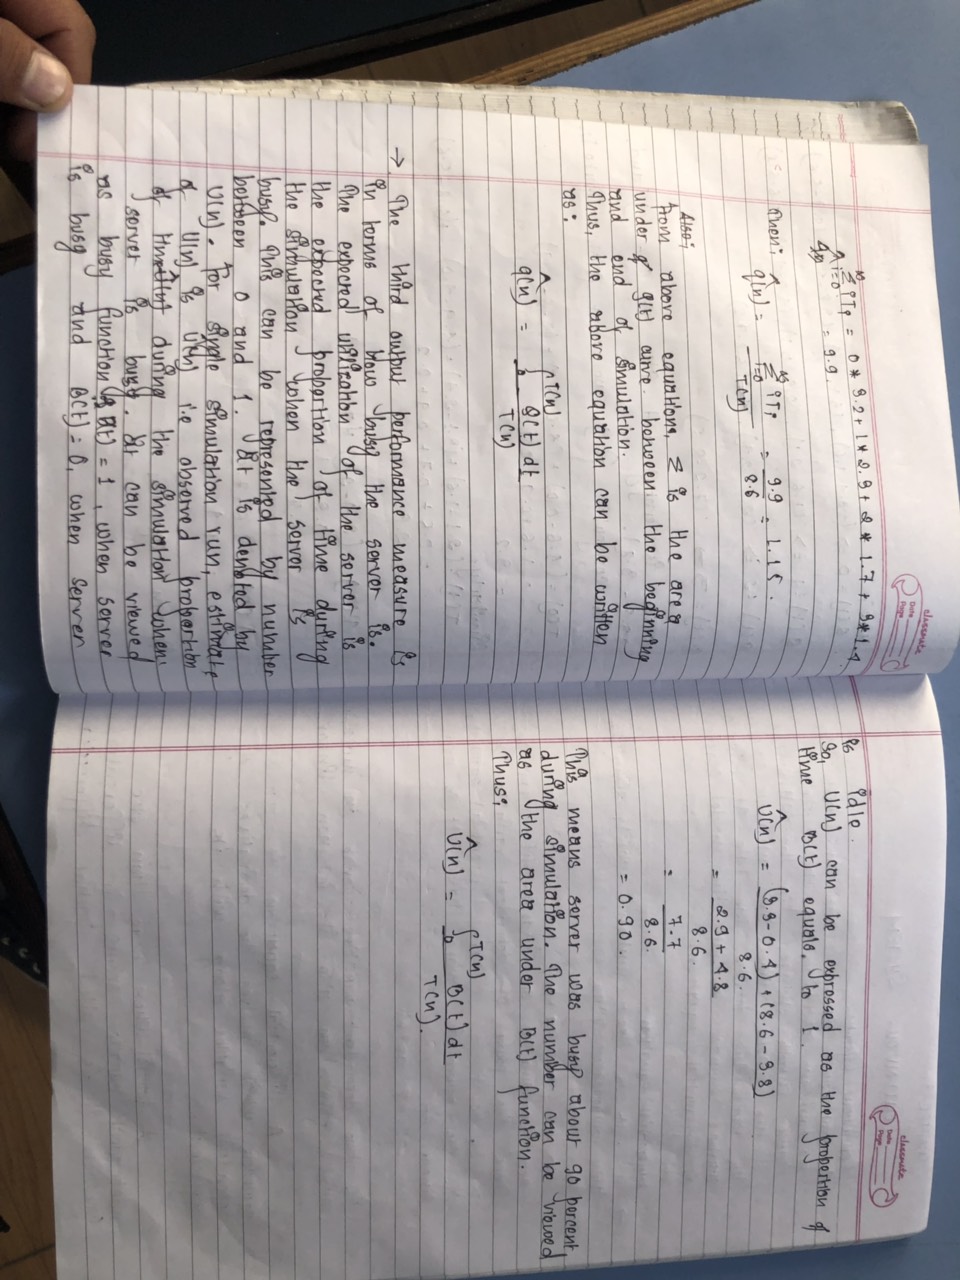 classmate
Date
Page
∞
Σ iTi = 0 * 3.2 + 1 * 2.9 + 2 * 1.7 + 3 * 1.4
i=0
= 9.9
Then;
q̂(n) = Σ iTi / T(n) = 9.9 / 8.6 = 1.15.
Also;
from above equations, Σ is the area
under q(t) curve between the beginning
and end of simulation.
Thus, the above equation can be written
as:
q̂(n) = ∫₀^T(n) Q(t) dt / T(n)
→ The third output performance measure is
in terms of how busy the server is.
The expected utilization of the server is
the expected proportion of time during
the simulation when the server is
busy. This can be represented by number
between 0 and 1. It is denoted by
U(n). for simple simulation run, estimate
of U(n) is Û(n) i.e observed proportion
of time during the simulation when
server is busy. It can be viewed
as busy function B(t) = 1, when server
is busy and B(t) = 0, when server
classmate
Date
Page
is idle.
So, U(n) can be expressed as the proportion of
time B(t) equals to 1.
Û(n) = (3.3 - 0.4) + (8.6 - 3.8) / 8.6.
= 2.9 + 4.8 / 8.6.
= 7.7 / 8.6.
= 0.90.
This means server was busy about 90 percent
during simulation. The number can be viewed
as the area under B(t) function.
Thus;
Û(n) = ∫₀^T(n) B(t) dt / T(n).